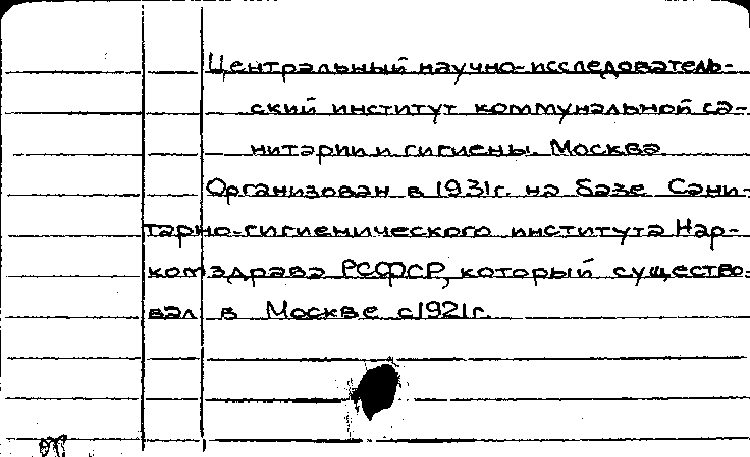 Центральный научно-исследователь-
ский институт коммунальной са-
нитарии и гигиены. Москва
Организован в 1931г. на базе Сани-
тарно-гигиенического института Нар-
комздрава РСФСР, который существо-
вал в Москве с 1921г.